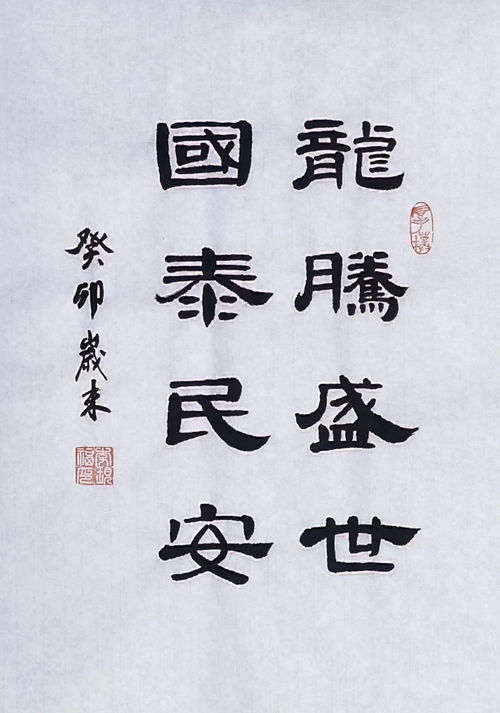 龍騰盛世
國泰民安
癸卯歲末